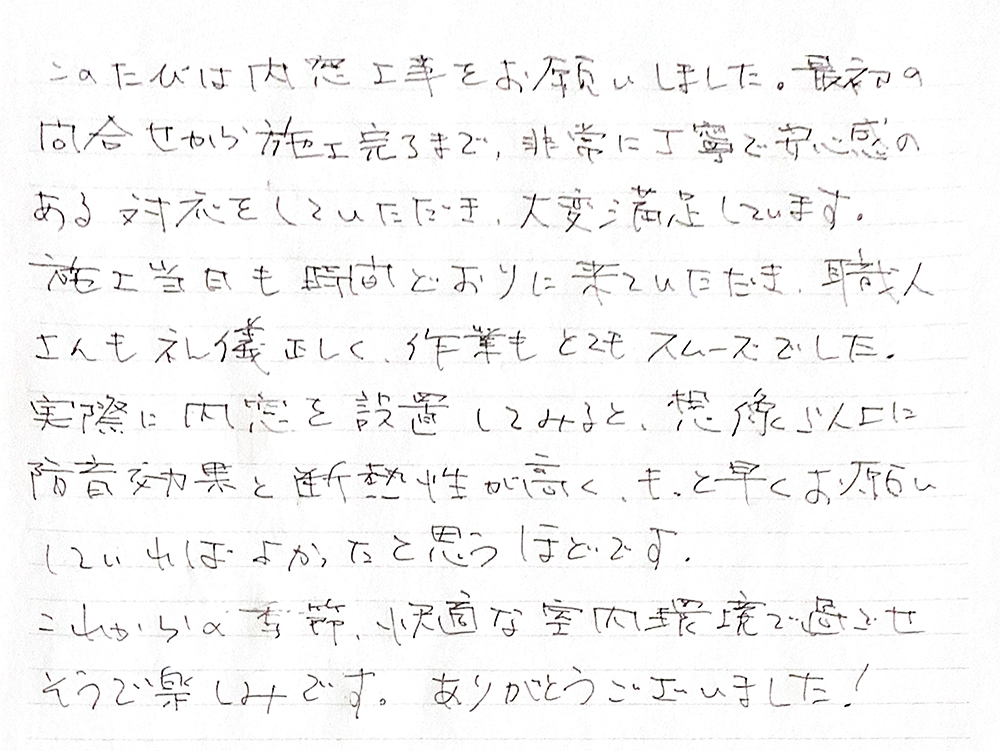 このたびは内窓工事をお願いしました。最初の
問合せから施工完了まで、非常に丁寧で安心感の
ある対応をしていただき、大変満足しています。
施工当日も時間どおりに来ていただき、職人
さんも礼儀正しく、作業もとてもスムーズでした。
実際に内窓を設置してみると、想像以上に
防音効果と断熱性が高く、もっと早くお願い
していればよかったと思うほどです。
これからの季節、快適な室内環境で過ごせ
そうで楽しみです。ありがとうございました!